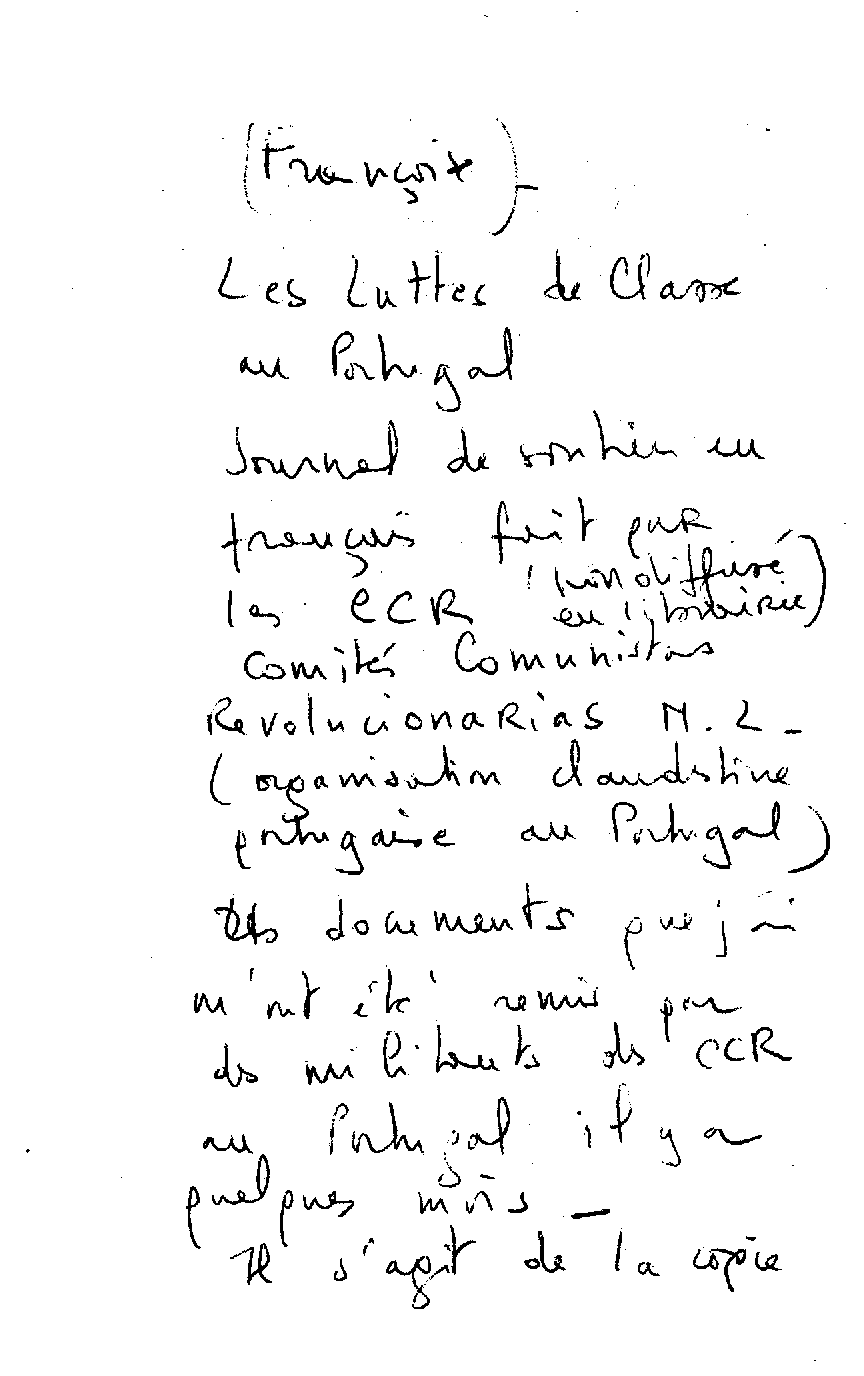 (Françoix)_
Les Luttes de Classe
au Portugal
Journal de soutien en
français fait par
(non diffusé
les CCR en librairie)
comités Comunistas
Revolucionarias M.L_
(organisation clandestine
portugaise au Portugal)
des documents que j'ai
m'ont été remis par
des militants des CCR
au Portugal il y a
quelques mois _
Il s'agit de la copie